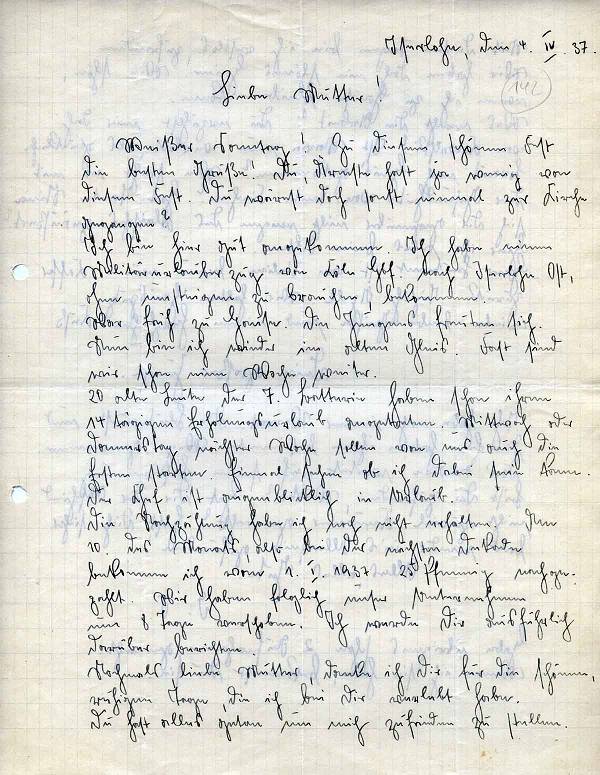 Iserlohn, den 4. IV. 37.
142
Liebe Mutter!
Weißer Sonntag! Zu diesem schönen Fest
die besten Grüße! Du, Ärmste hast ja wenig von
diesem Fest. Du wärest doch sonst einmal zur Kirche
gegangen?
Ich bin hier gut angekommen. Ich habe einen
Militärurlauberzug von Köln Hbf. nach Iserlohn Ost,
ohne umsteigen zu brauchen bekommen.
War früh zu Hause. Die Jungens freuten sich.
Nun bin ich wieder im alten Gleis. Fast sind
wir schon eine Woche weiter.
20 alte Leute der 7. Batterie haben schon ihren
14 tägigen Erholungsurlaub angetreten. Mittwoch oder
Donnerstag nächster Woche sollen von uns auch die
Ersten starten. Einmal sehen ob ich dabei sein kann.
Der Chef ist augenblicklich in Urlaub.
Die Nachzahlung habe ich noch nicht erhalten. Am
10. des Monats, also bei der nächsten Dekade
bekomme ich vom 1. I. 1937 25 Pfennig nachge-
zahlt. Wir haben folglich unser Unternehmen
um 8 Tage verschoben. Ich werde Dir ausführlich
darüber berichten.
Nochmals liebe Mutter, danke ich Dir für die schönen,
ruhigen Tage, die ich bei Dir verlebt habe.
Du hast alles getan um mich zufrieden zu stellen.